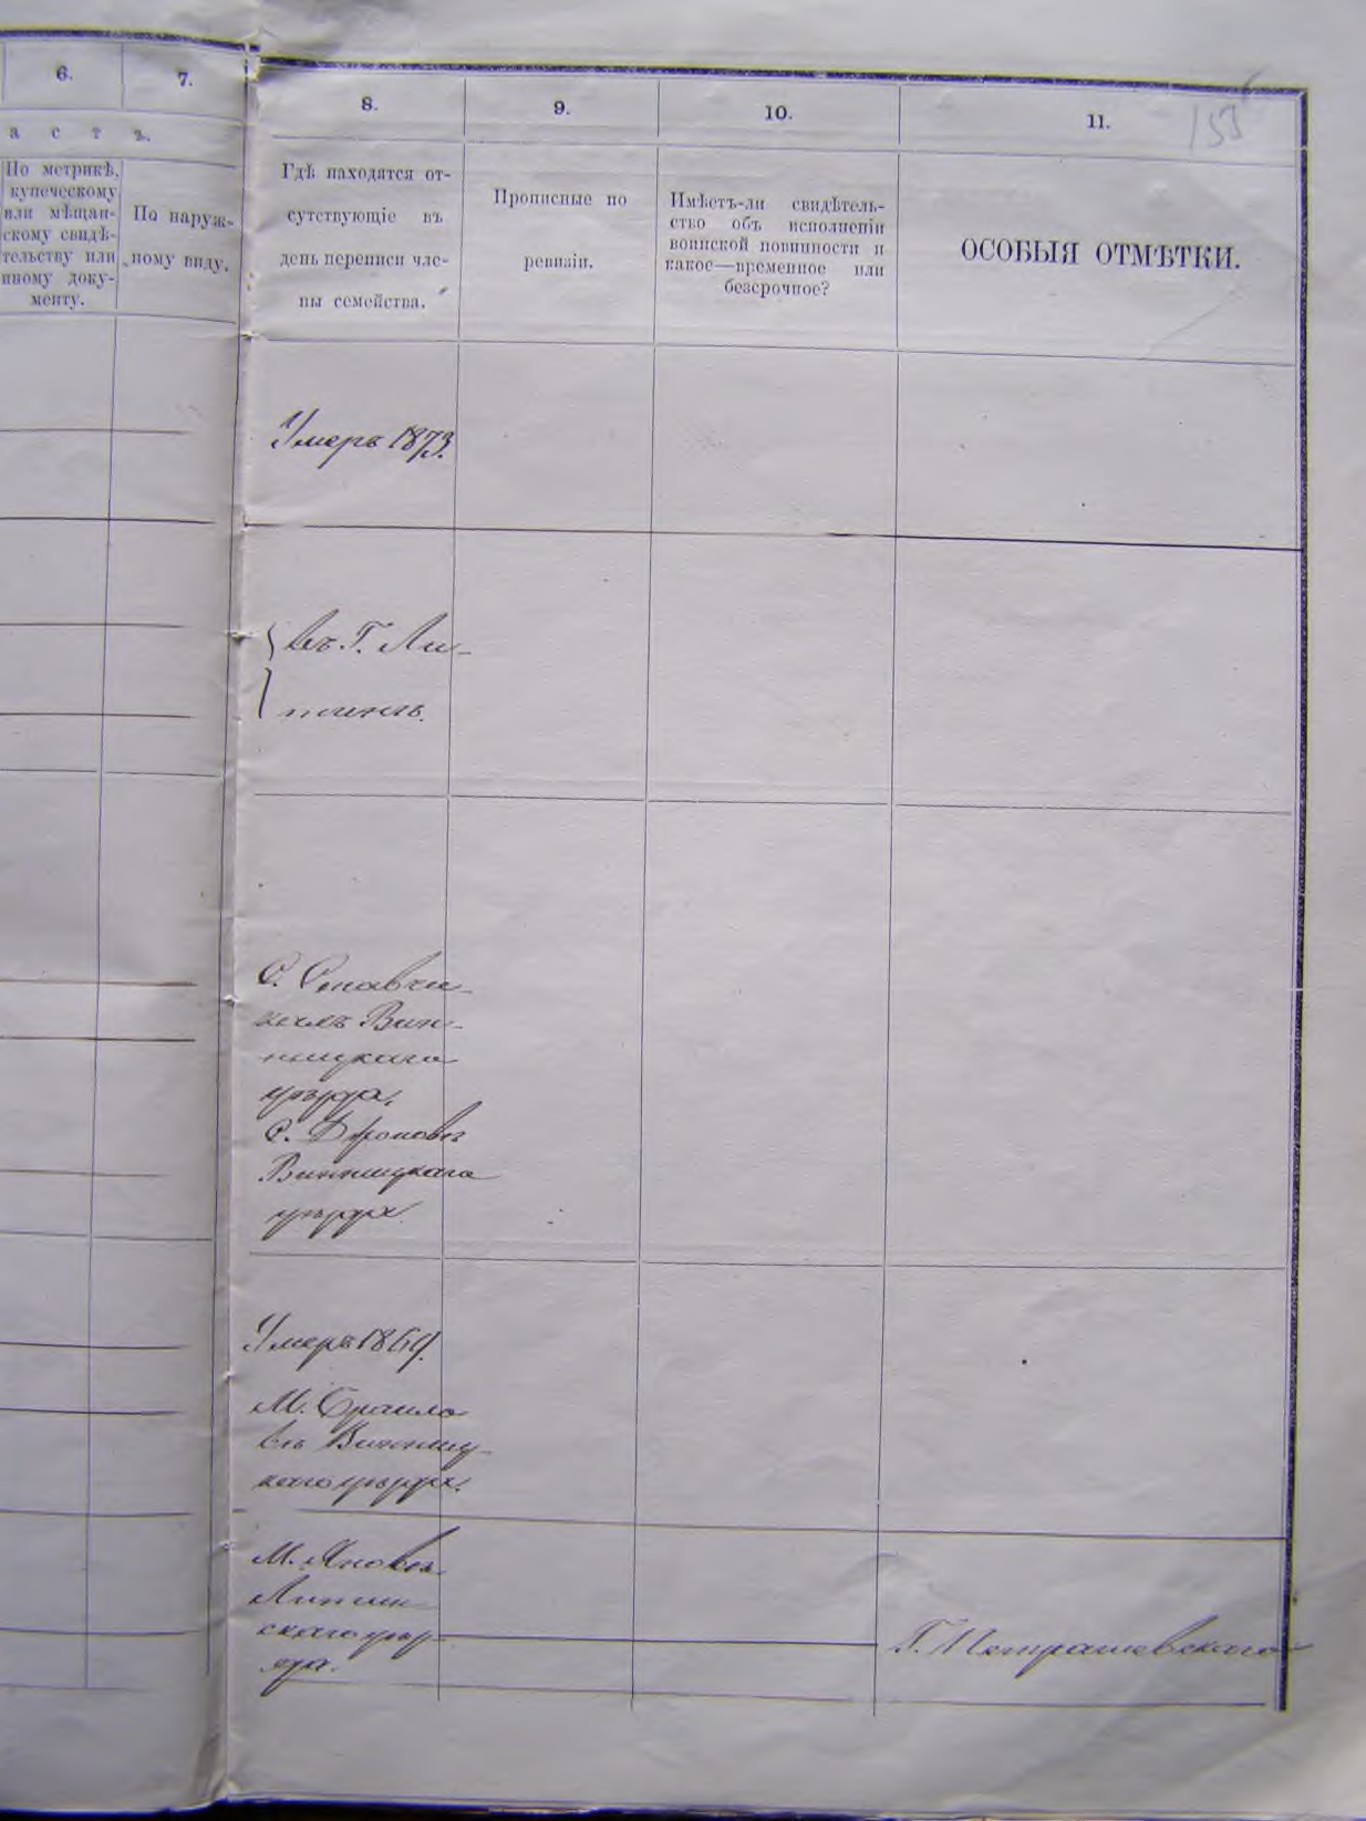 6.
7.
8.
9.
10.
11.
а с т ь.
По метрикѣ,
купеческому
или мѣщан-
скому свидѣ-
тельству или
иному доку-
менту.
По наруж-
ному виду.
Гдѣ находятся от-
сутствующіе въ
день переписи чле-
ны семейства.
Прописные по
ревизіи.
Имѣетъ-ли свидѣтель-
ство объ исполненіи
воинской повинности и
какое—временное или
безсрочное?
ОСОБЫЯ ОТМѢТКИ.
Умеръ 1873.
въ Г. Ли-
тинѣ.
С.
Вин-
ницкаго
уѣзда.
С.
Винницкаго
уѣзда
Умеръ 1869.
М. Браило
въ Винниц-
каго уѣзда.
М. Яновъ
Литин
скаго уѣз-
да.
Г. Петрашевскаго